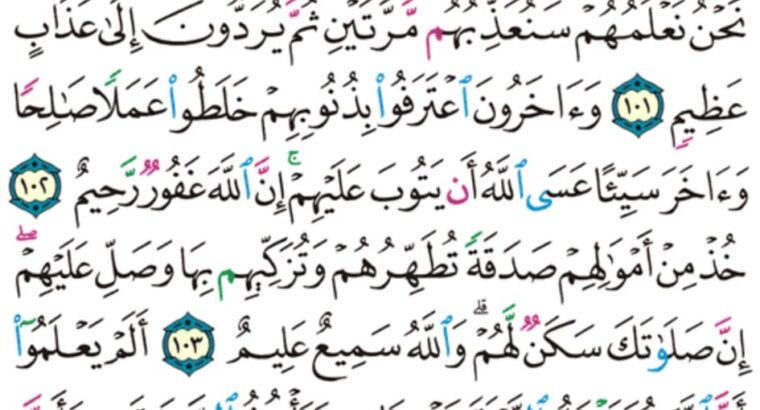 نَحۡنُ نَعۡلَمُهُمۡۚ سَنُعَذِّبُهُم مَّرَّتَيۡنِ ثُمَّ يُرَدُّونَ إِلَىٰ عَذَابٍ
عَظِيمٖ ١٠١ وَءَاخَرُونَ ٱعۡتَرَفُواْ بِذُنُوبِهِمۡ خَلَطُواْ عَمَلٗا صَٰلِحٗا
وَءَاخَرَ سَيِّئًا عَسَى ٱللَّهُ أَن يَتُوبَ عَلَيۡهِمۡۚ إِنَّ ٱللَّهَ غَفُورٞ رَّحِيمٌ ١٠٢
خُذۡ مِنۡ أَمۡوَٰلِهِمۡ صَدَقَةٗ تُطَهِّرُهُمۡ وَتُزَكِّيهِم بِهَا وَصَلِّ عَلَيۡهِمۡۖ
إِنَّ صَلَوٰتَكَ سَكَنٞ لَّهُمۡۗ وَٱللَّهُ سَمِيعٌ عَلِيمٌ ١٠٣ أَلَمۡ يَعۡلَمُوٓاْ